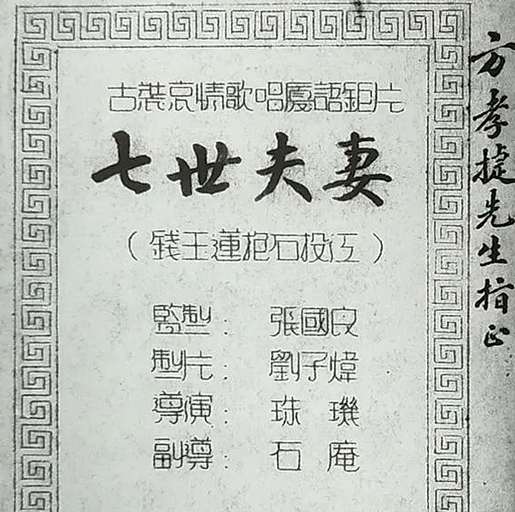 古裝哀情歌唱廈語鉅片
七世夫妻
（錢玉蓮抱石投江）
監製： 張國良
製片： 劉子煒
導演： 珠璣
副導： 石庵
方孝捷先生指正